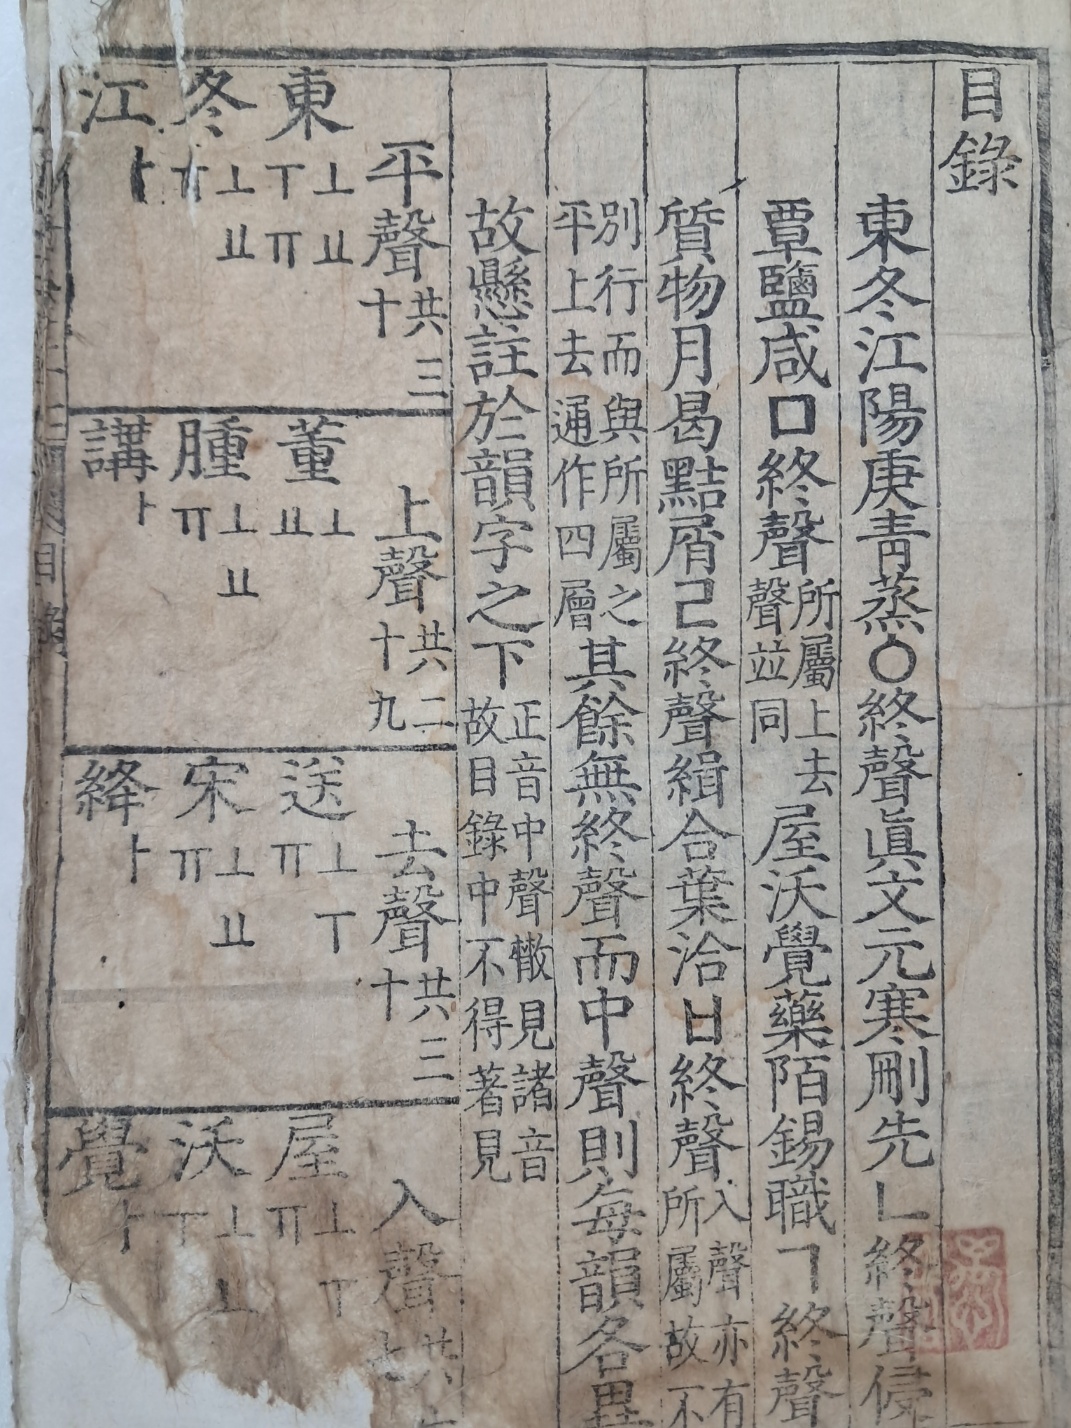 目錄
東冬江陽庚青蒸ㅇ終聲眞文元寒刪先ㄴ終聲侵
覃鹽咸ㅁ終聲所屬上去聲並同屋沃覺藥陌錫職ㄱ終聲
質物月曷黠屑ㄹ終聲緝合葉洽ㅂ終聲入聲亦有所屬故不
別行而與所屬之平上去通作四層其餘無終聲而中聲則每韻各異
故懸註於韻字之下正音中聲轍見諸音故目錄中不得著見
平聲共三十
東ㅗㅛㅜㅠ
冬ㅗㅛㅠ
江ㅏ
上聲共二十九
董ㅗㅛ
腫ㅗㅛㅠ
講ㅏ
去聲共三十
送ㅗㅜㅠ
宋ㅗㅛㅠ
絳ㅏ
入聲共十七
屋ㅗㅜㅠ
沃ㅗㅜ
覺ㅏ
目錄